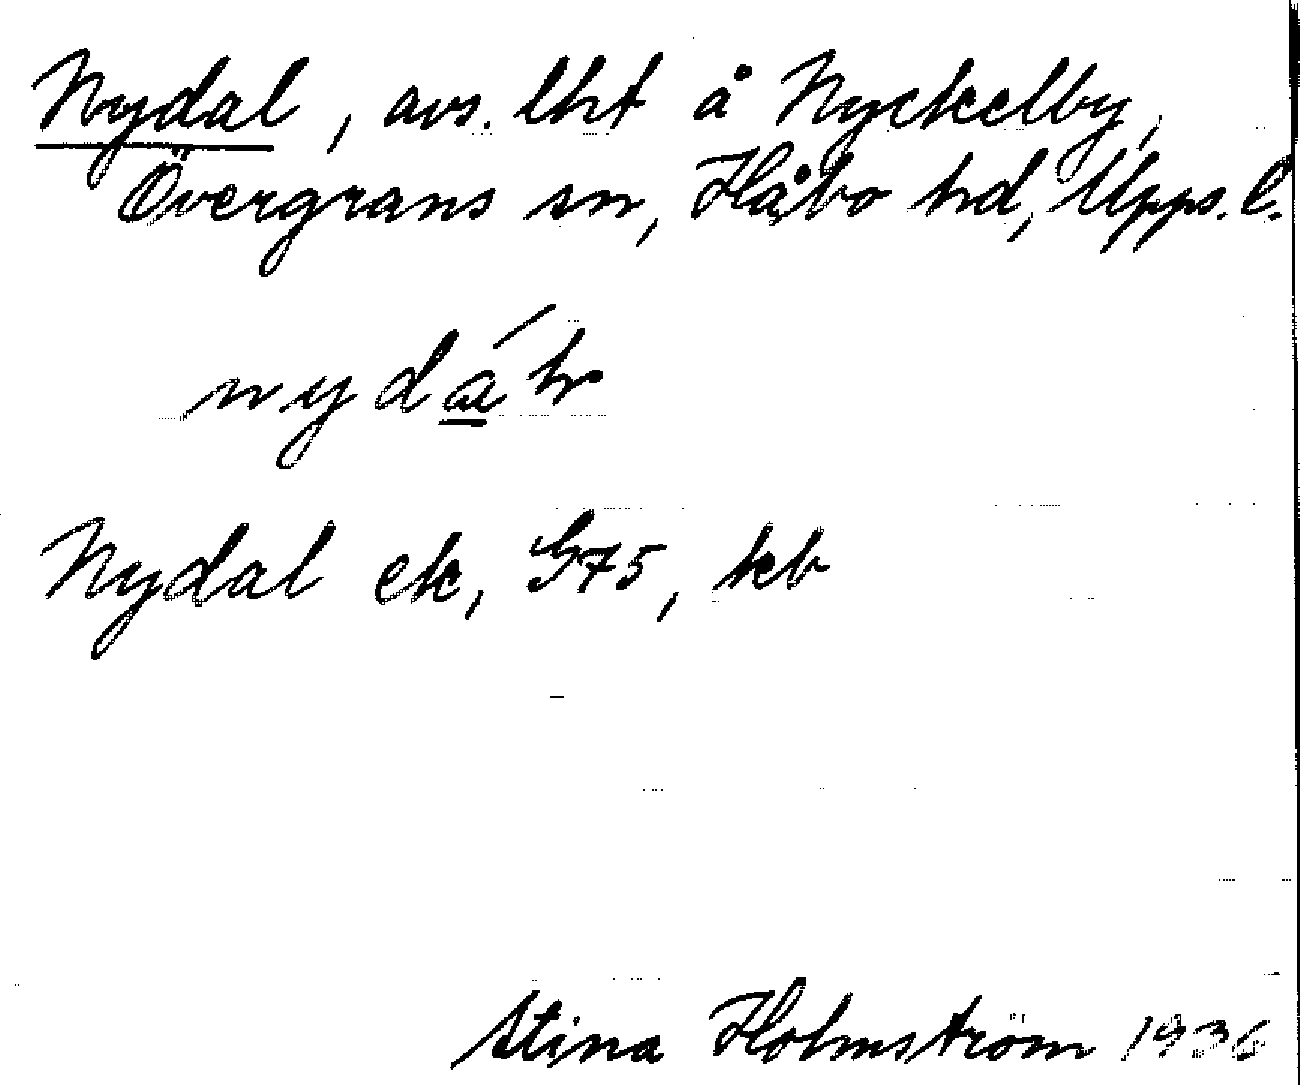 Nydal, avs. lht å Nyckelby,
Övergrans sn, Håbo hd, Upps. l.
Nydal ek, G75, kb
Stina Holmström 1936